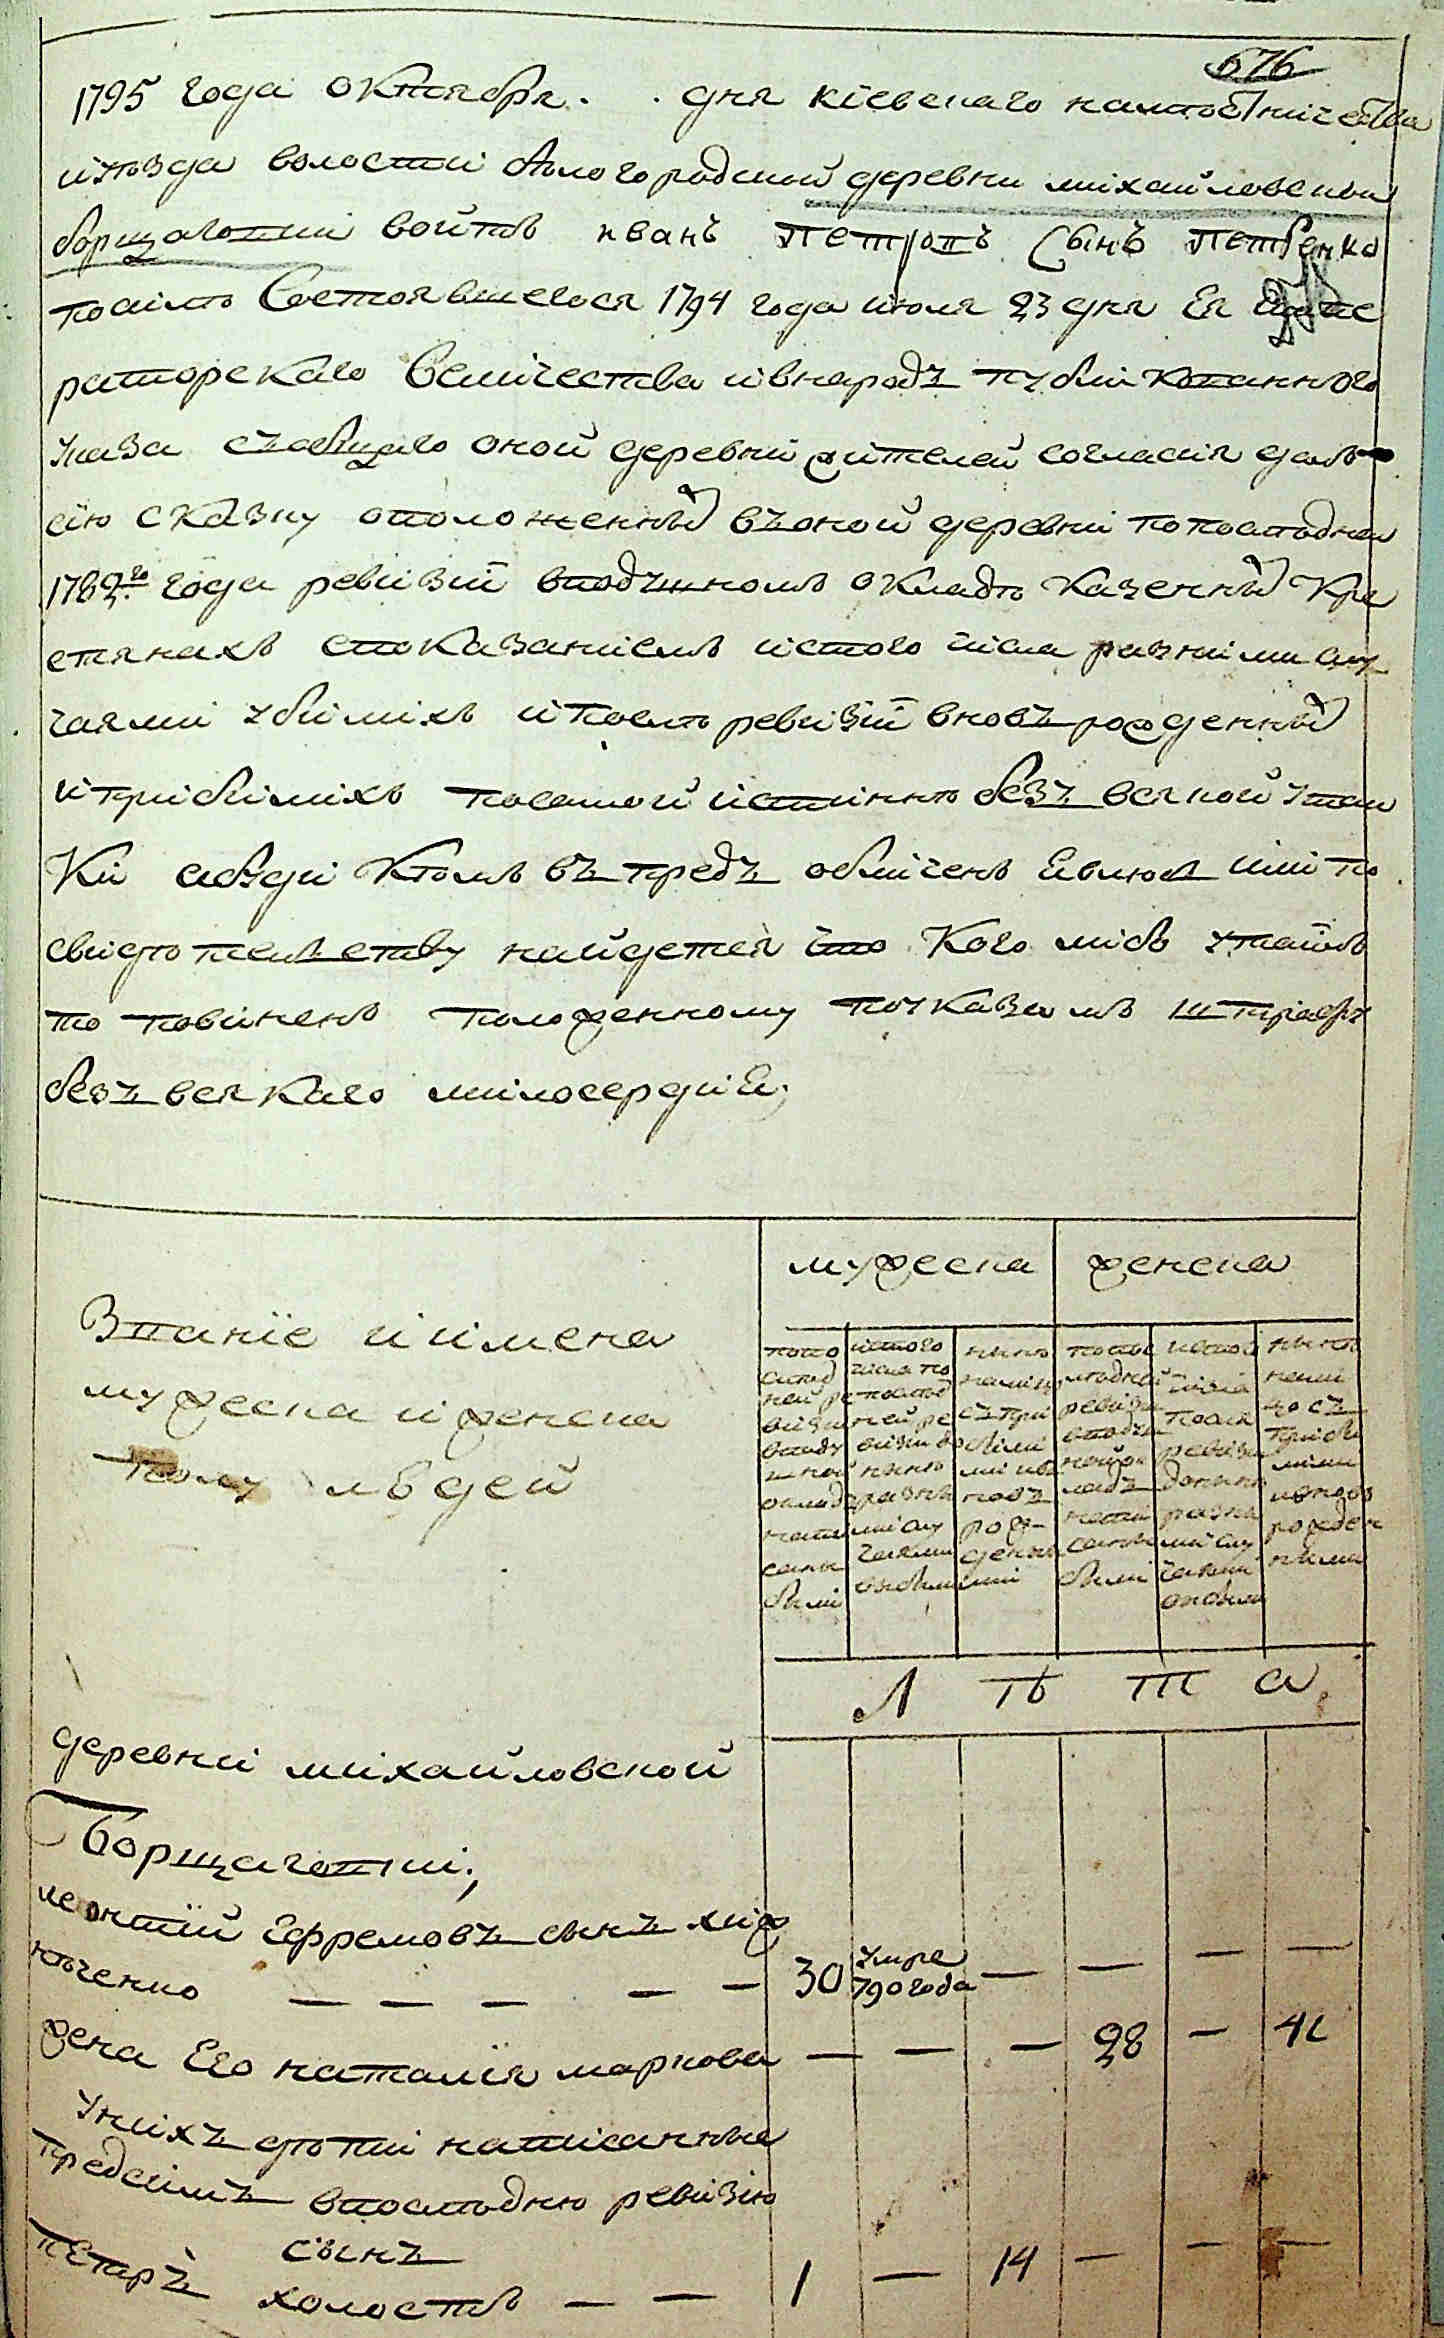 676
1795 года октября . . дня кіевскаго намѣстничества
и уѣзда волости бѣлогородской деревни михайловской
борщаговки войтъ иванъ петровъ сынъ петренко
по силѣ состоявшегося 1794 года июля 23 дня Ея импе
раторскаго величества и внародъ публикованного
указа съ общаго оной деревни жителей согласия далъ
сію сказку о положенных въ оной деревни по последней
1782го года ревизіи в подушномъ окладѣ казенных кре
стянахъ с показаніемъ ис того числа разними слу
чаями убилихъ и после ревизіи вновь рожденных
и прибилихъ по самой истиннѣ безъ всякой утай
ки а буди кѣмъ въпредъ обличенъ явлюсь или по
свидѣтельству найдется что кого либъ утаилъ
то повиненъ положенному по указамъ штрафу
безъ всякаго милосердия;
мужеска женска
Званіе и имена
мужеска и женска
полу людей
по по
след
ней ре
визии
в поду
шной
оклад
напи
саны
были
ис того
числа по
послед
ней ре
визии до
ныне
разны
ми слу
чаями
выбили
ныне
налицо
съ при
были
ми и в
новь
рож-
денны
ми
по пос
ледней
ревизи
в подуш
ной ок
ладъ
напи
саны
были
ис того
числа
после
ревизи
до ныне
разны
ми слу
чаями
выбили
ныне
нали
цо съ
приби
лими
и вновь
рожден
ными
Л ѣ т а
деревни михайловской
Борщаговки;
леонтій Ефремовъ сынъ хиж
нѣченко — — — — — 30 умре 790 года — — — —
жена Его наталія маркова — — — 28 — 41
у нихъ дѣти написанные
предсимъ в последню ревизію
сынъ
петръ холостъ — — 1 — 14 — — —